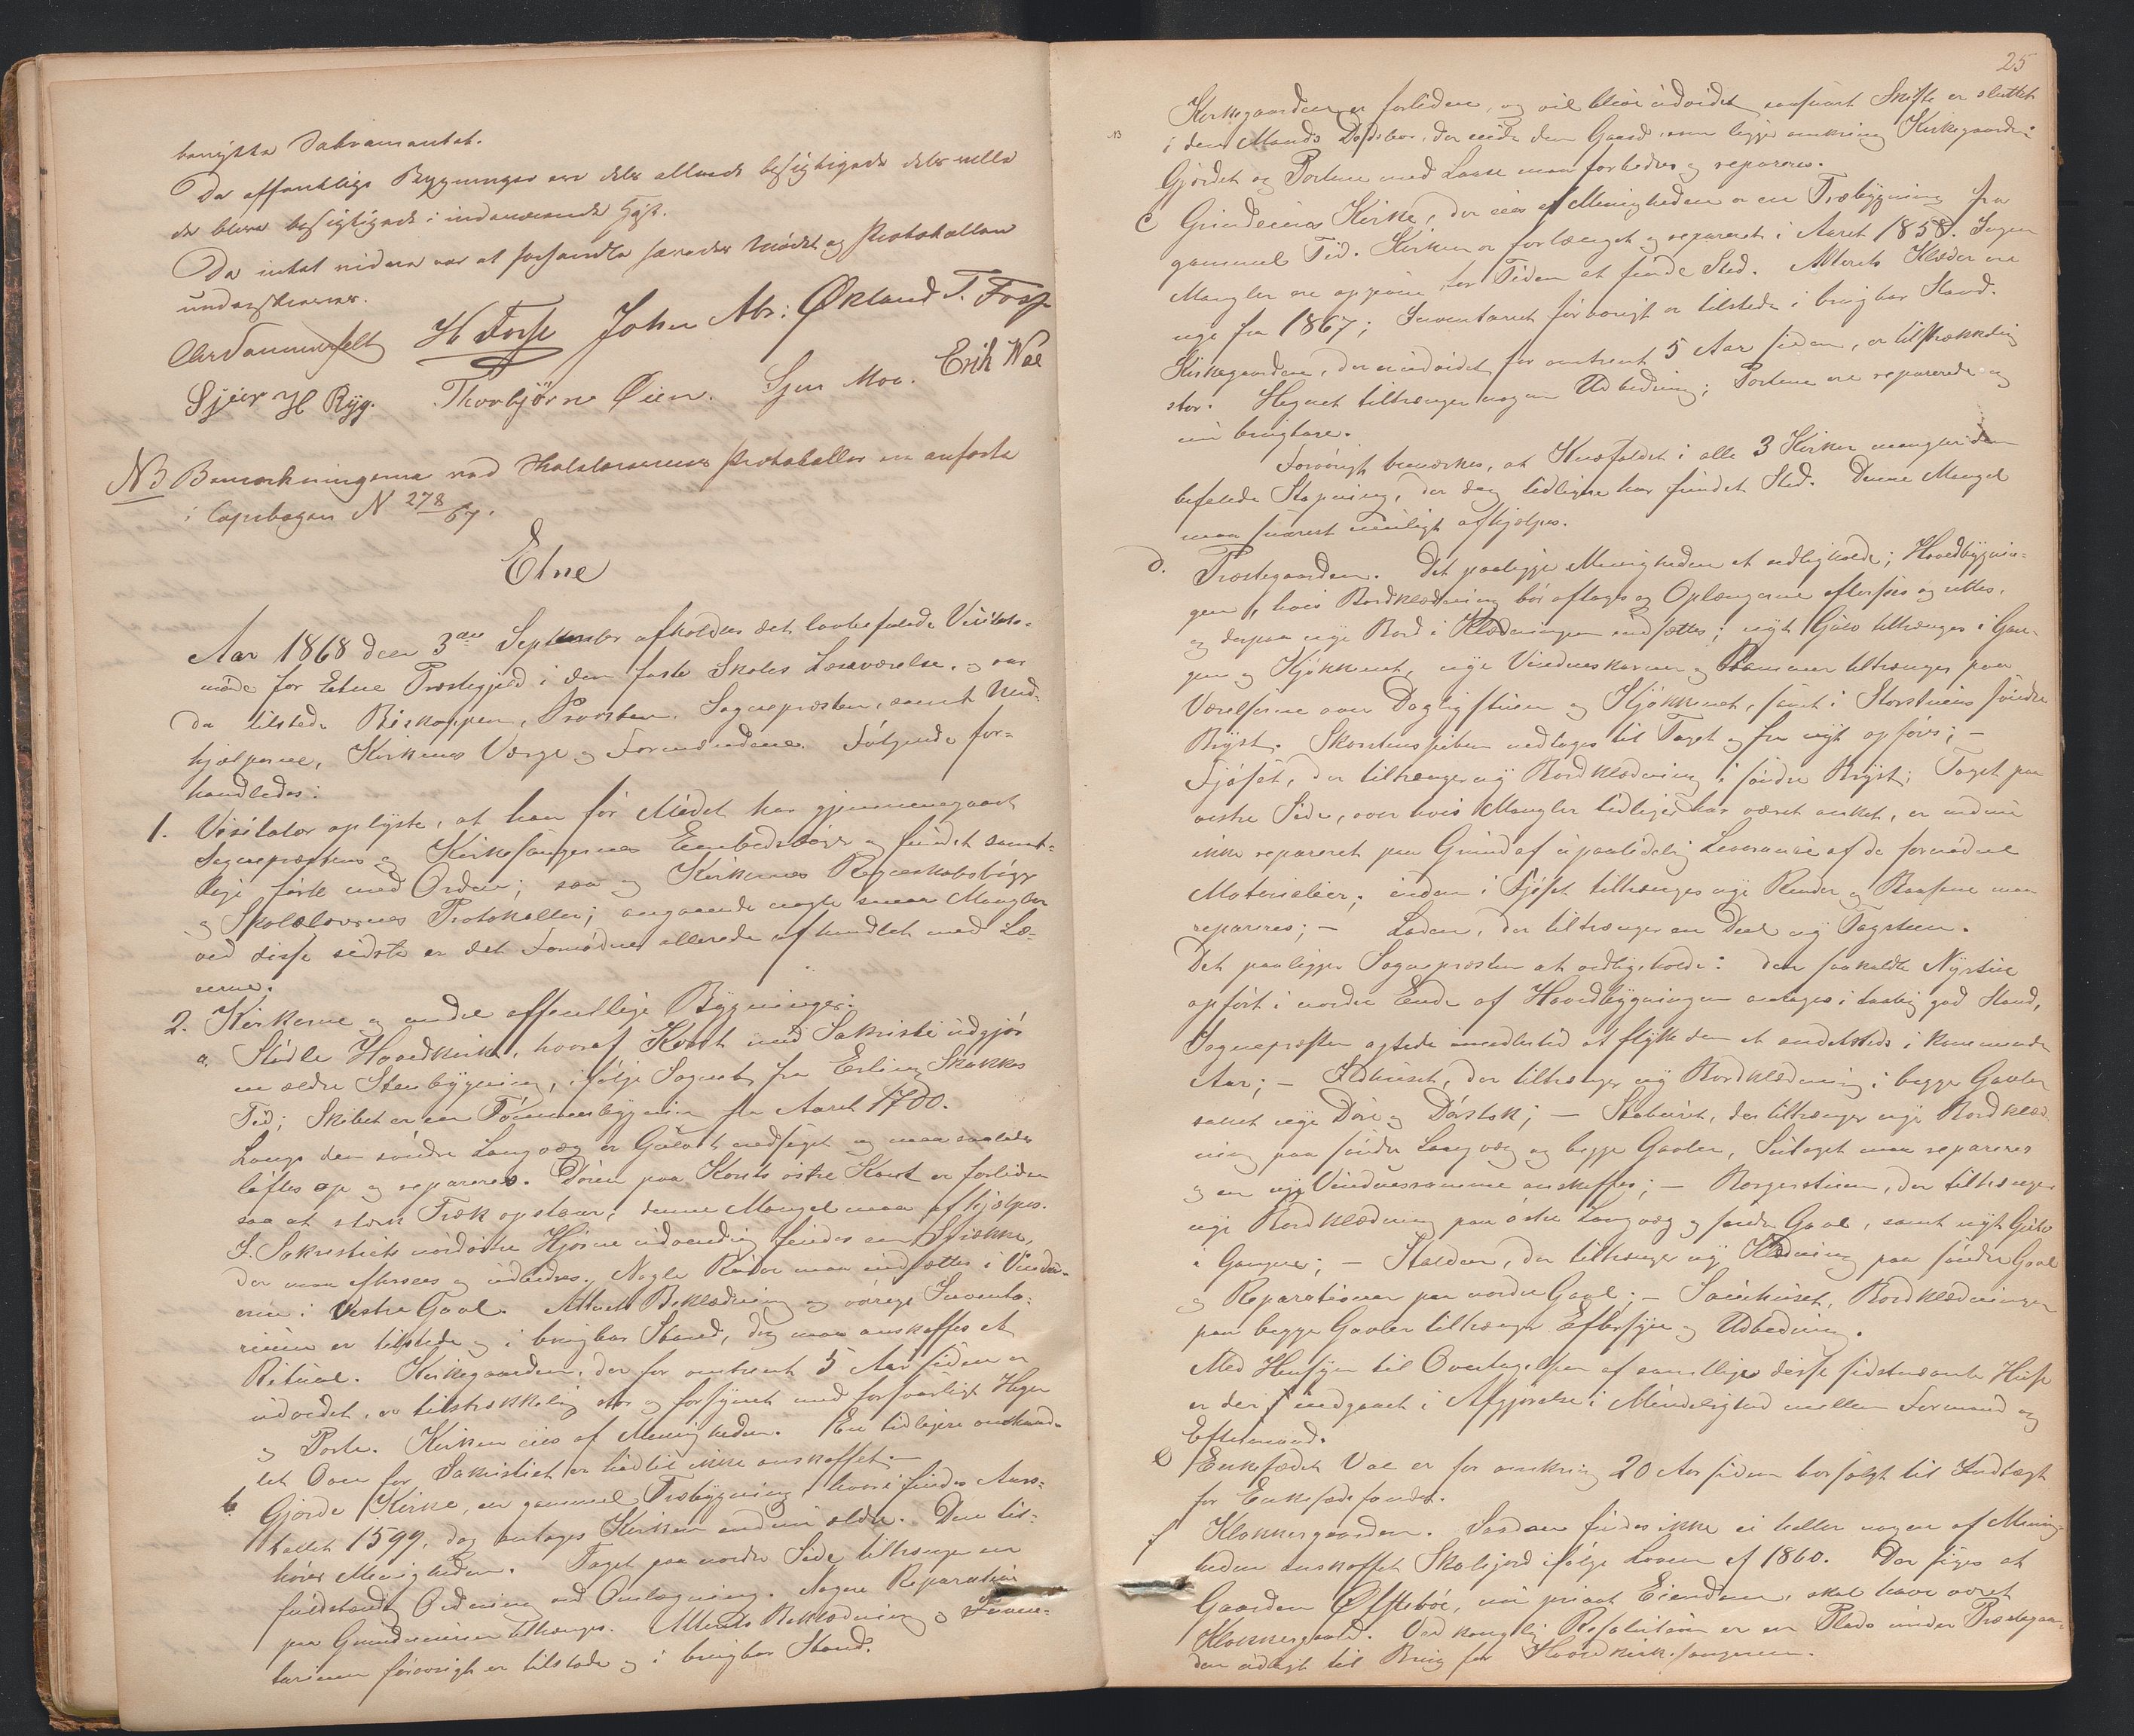 benytte Sakramentet.
De offentlige Bygninger ere dels allerede besigtigede dels ville
de blive besigtigede i indeværende Høst.
Da intet videre var at forhandle hævedes Mødet og Protokollen
underskreves.
H Fosse John Abr: Økland T. Fosse
Sjur H Ryg. Thorbjørn Øien. Sjur Moe. Erik Vae
NB Bemærkningerne ved Skolelærernes Protokoller ere anførte
i Copiebogen N 278/67.
Etne
Aar 1868 den 3die September afholdtes det lovbefalede Visitats-
møde for Etne Præstegjeld i den faste Skoles Læseværelse, og var
da tilstede Biskoppen, Provsten, Sognepræsten, samt Med-
hjælperne, Kirkernes Værge og Formændene. Følgende for-
handledes:
1. Visitator oplyste, at han før Mødet har gjennemgaaet
Sognepræstens og Kirkesangernes Embedsbøger og fundet samt-
lige førte med Orden; saa og Kirkernes Regnskabsbøger
og Skolelærernes Protokoller; angaaende nogle smaa Mangler
ved disse sidste er det Fornødne allerede afhandlet med Læ-
rerne.
2. Kirkerne og andre offentlige Bygninger:
a. Stødle Hovedkirke, hvoraf Koret med Sakristi udgjør
en ældre Stenbygning, ifølge Sagnet fra Erling Skakkes
Tid; Skibet er en Tømmerbygning fra Aaret 1700.
Langs den søndre Langvæg er Gulvet nedsiget og maa saaledes
løftes op og repareres. Døren paa Korets østre Kant er forliden
saa at stærk Træk opstaar; denne Mangel maa afhjælpes.
I Sakristiets nordøstre Hjørne udvendig findes en Sprække,
der maa eftersees og udbedres. Nogle Ruder maa indsættes i Vindu-
erne i Vestre Gavl. Alterets Beklædning og øvrige Invento-
rium er tilstede og i brugbar Stand, dog maa anskaffes et
Ritual. Kirkegaarden, der for omtrent 5 Aar siden er
udvidet, er tilstrækkelig stor og forsynet med forsvarligt Hegn
og Porte. Kirken eies af Menigheden. En tidligere omhand-
let Ovn for Sakristiet er hidtil ikke anskaffet.—
b. Gjerde Kirke, en gammel Træbygning, hvori findes Aars-
tallet 1599, dog antages Kirken endnu ældre. Den til-
hører Menigheden. Taget paa nordre Side tiltrænger en
fuldstændig Ordning ved Omlægning. Nogen Reparation
paa Grundmuren tiltrænges. Alterets Beklædning og Inven-
tarium forøvrigt er tilstede og i brugbar Stand.
25
NB Kirkegaarden er forliden, og vil blive udvidet saasnart Skifte er sluttet
i den Mands Dødsbo, der eiede den Gaard, som ligger omkring Kirkegaarden.
Gjerdet og Portene med Laase maa forbedres og repareres.
c Grindeims Kirke, der eies af Menigheden er en Træbygning fra
gammel Tid. Kirken er forlænget og repareret i Aaret 1858. Ingen
Mangler ere opgivne for Tiden at finde Sted. Alterets Klæder ere
nye fra 1867; Inventariet forøvrigt er tilstede i brugbar Stand.
Kirkegaarden, der er udvidet for omtrent 5 Aar siden, er tilstrækkelig
stor. Hegnet tiltrænger nogen Udbedring; Portene ere reparerede og
nu brugbare.
Forøvrigt bemærkes, at Knæfaldet i alle 3 Kirker mangler den
befalede Stopning, der dog tidligere har fundet Sted. Denne Mangel
maa snarest muligt afhjælpes.
d. Præstegaarden. Det paaligger Menigheden at vedligeholde; Hovedbygnin-
gen, hvis Bordklædning bør aftages og Oplængerne eftersees og rettes,
og derpaa nye Bord i Klædningen indsættes; nyt Gulv tiltrænges i Gan-
gen og Kjøkkenet, nye Vindueskarme og Rammer tiltrænges paa
Værelserne over Dagligstuen og Kjøkkenet, samt i Storstuens søndre
Bryst. Skorstenspiben nedtages til Taget og fra nyt opføres; —
Fjøset, der tiltrænger ny Bordklædning i søndre Bryst; Taget paa
vestre Side, over hvis Mangler tidligere har været anket, er endnu
ikke repareret paa Grund af upaalidelig Leverance af de fornødne
Materialier; inden i Fjøset tiltrænges nye Render og Baasene maa
repareres; — Laden, der tiltrænger en Deel ny Tagsteen.
Det paaligger Sognepræsten at vedligeholde: den saakaldte Nystue
opført i nordre Ende af Hovedbygningen antages i taalig god Stand,
Sognepræsten agtede imidlertid at flytte den et andetsteds i kommende
Aar; — Ildhuset, der tiltrænger ny Bordklædning i begge Gavler
samt nye Døre og Dørstok; — Stabburet, der tiltrænger nye Bordklæd-
ning paa søndre Langvæg og begge Gavler, Sutaget maa repareres
og en ny Vinduesramme anskaffes; — Borgerstuen, der tiltrænger
nye Bordklædning paa østre Langvæg og søndre Gavl, samt nyt Gulv
i Gangene; — Stalden, der tiltrænger ny Klædning paa søndre Gavl
og Reparationer paa nordre Gavl; — Bordklædningen
paa begge Gavler tiltrænger Eftersyn og Udbedring.
Med Hensyn til Overtagelsen af samtlige disse sidstnævnte Huse
er der indgaaet i Afgjørelse i Mindelighed mellem Formand og
Eftermand.
e Enkesædet Vae er for omkring 20 Aar siden bortsolgt til Indtægt
for Enkesædefondet.
f Klokkergaarden. Saadan findes ikke ei heller nogen af Menig-
heden anskaffet Skolejord ifølge Loven af 1860. Der siges at
Gaarden Ølstebøe, nu privat Eiendom, skal have været
Klokkergaard. Ved kongelig Resolution er en Plads under Præstegaar-
den udlagt til Brug for Hovedkirkesangeren.